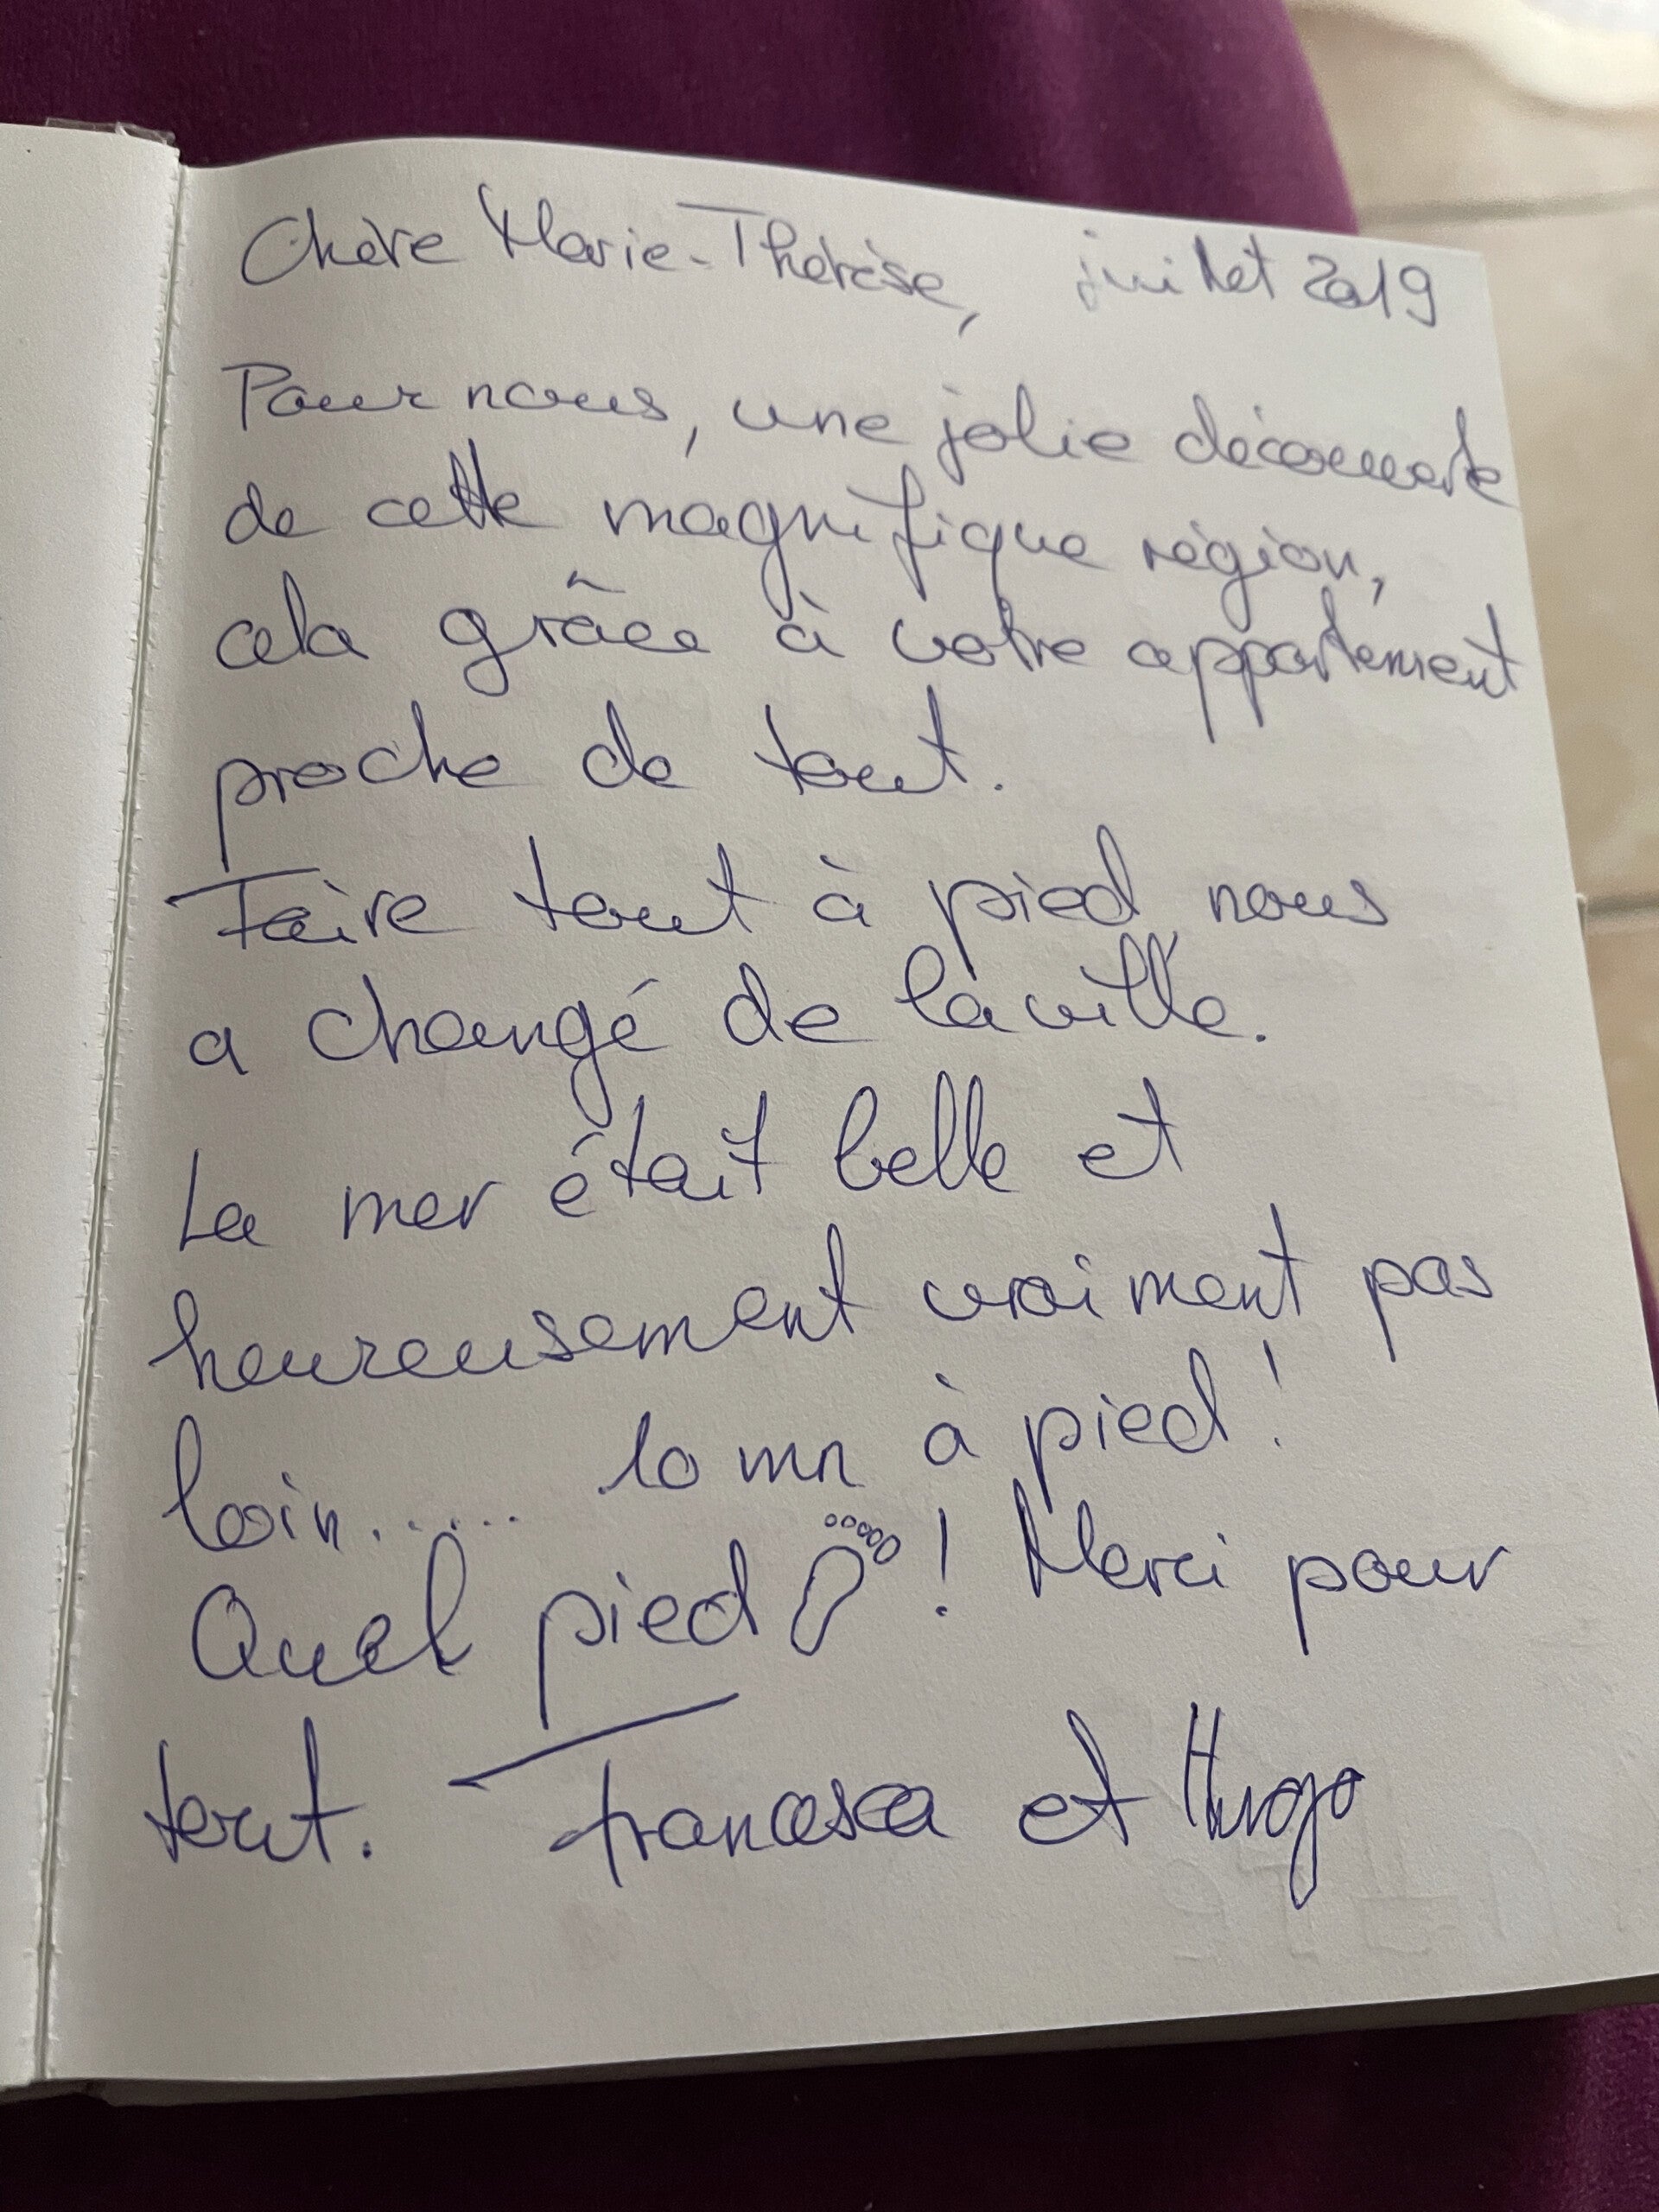 Chère Marie-Thérèse, juillet 2019
Pour nous, une jolie découverte
de cette magnifique région,
cela grâce à votre appartement
proche de tout.
Faire tout à pied nous
a changé de la ville.
La mer était belle et
heureusement vraiment pas
loin...... 10 mn à pied !
Quel pied ! Merci pour
tout. Francesca et Hugo